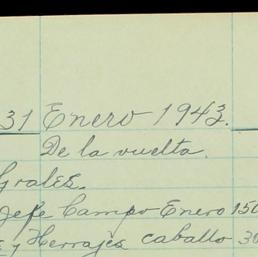 31 Enero 1943.
De la vuelta.
Grales.
Jefe Campo Enero 150
y Herrajes caballo 30